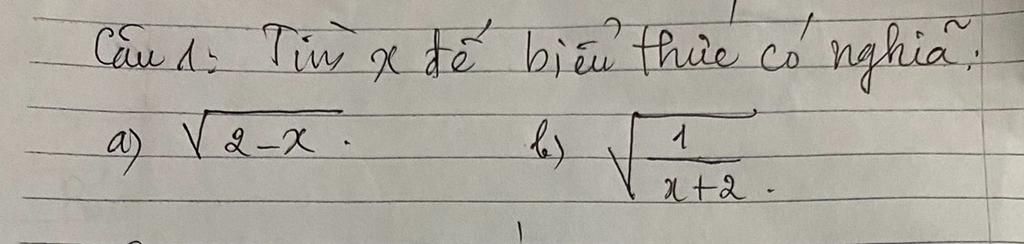 Câu 1: Tìm x để biểu thức có nghĩa.
a) √(2-x). b) √(1/(x+2)).